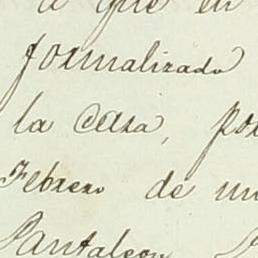 a que en
formalizado
la casa, por
Febrero de un
Pantaleon